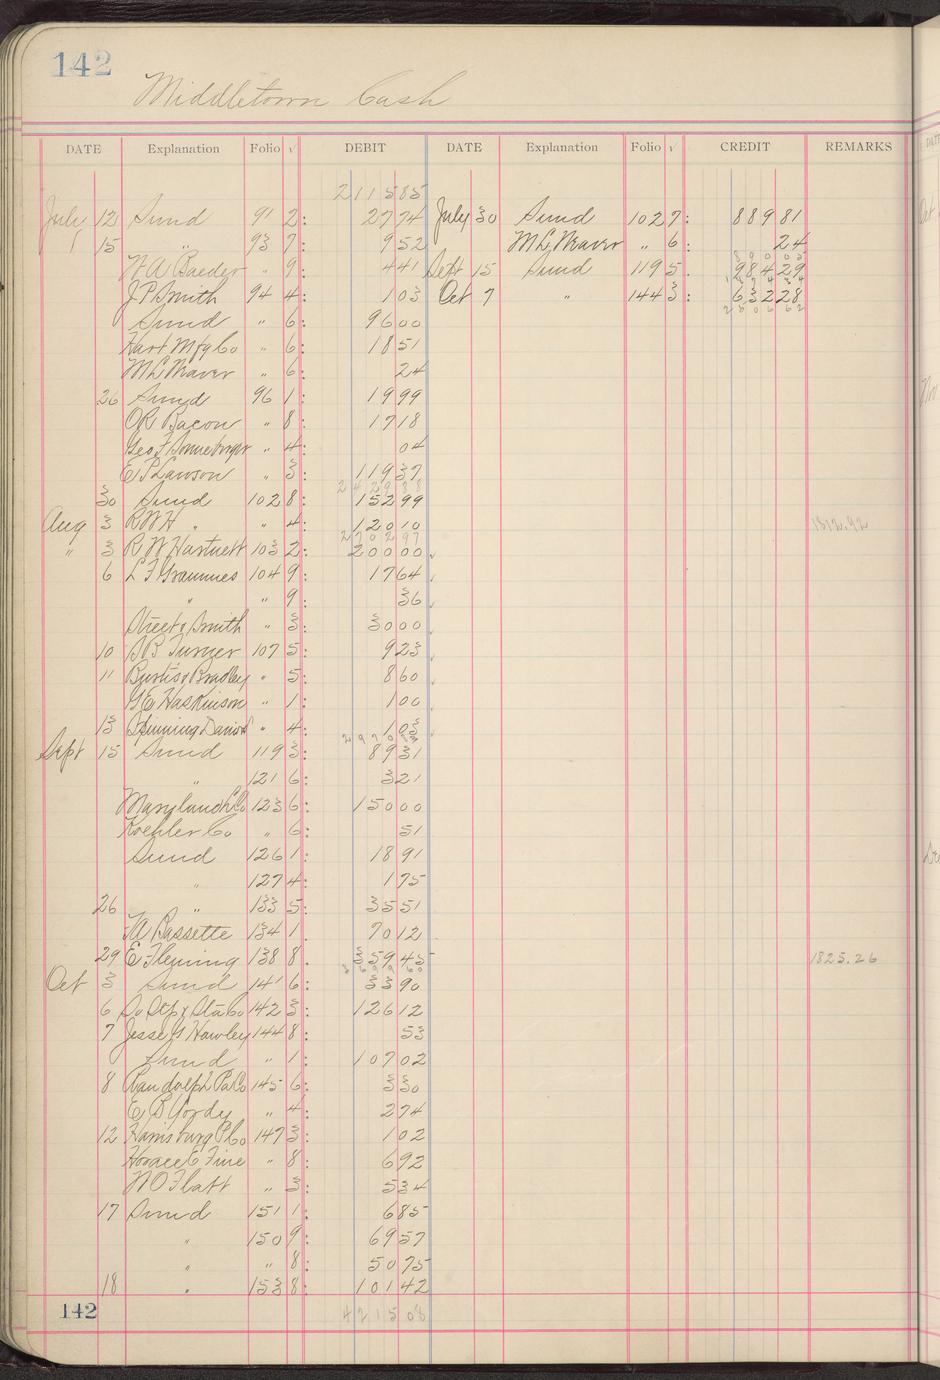 142
Middletown Cash
DATE Explanation Folio √ DEBIT DATE Explanation Folio √ CREDIT REMARKS
2115 85
July 12 Sund 91 2: 27 74 July 30 Sund 102 7: 889 81
15 " 93 7: 9 52 M L Weaver " 6: 24
W A Baeder " 9: 4 41 Sept 15 Sund 119 5. 984 29
J P Smith 94 4: 1 03 Oct 7 " 144 3: 632 28
Sund " 6: 96 00 2506 62
Hart Mfg Co " 6: 18 51
M L Weaver " 6: 24
26 Sund 96 1: 19 99
O R Bacon " 8: 17 18
Geo F " 4: 04
E P Lawson " 3: 119 37
2429 88
30 Sund 102 8: 152 99
Aug 3 R W H " " 4: 120 10 1812.92
2702 97
" 3 R W Hartnett 103 2: 200 00
6 L F Grammes 104 9: 17 64
" " 9: 36
Street & Smith " 3: 30 00
10 S B Turner 107 5: 9 23
11 Burtis & Bradley " 5: 8 60
G E Haskinson " 1: 1 00
13 " 4: 1 03
Sept 15 Sund 119 3: 89 31
" 121 6: 3 21
123 6: 150 00
Koehler Co " 6: 51
Sund 126 1: 18 91
" 127 4: 1 75
26 " 133 5: 35 51
Bassette 134 1. 70 12
29 E Fleming 138 8. 359 45 1825.26
Oct 3 Sund 141 6: 33 90
6 142 3: 126 12
7 Jesse G Hawley 144 8: 53
Sund " 1: 107 02
8 Randolph Pa Co 145 6: 3 30
E B Yordy " 4: 2 74
12 Harrisburg P Co 147 3: 1 02
Horace E Fine " 8: 6 92
W O Flatt " 3: 5 34
17 Sund 151 1: 6 85
" 150 9: 69 57
" " 8: 50 75
18 " 153 8: 101 42
142 4215 08